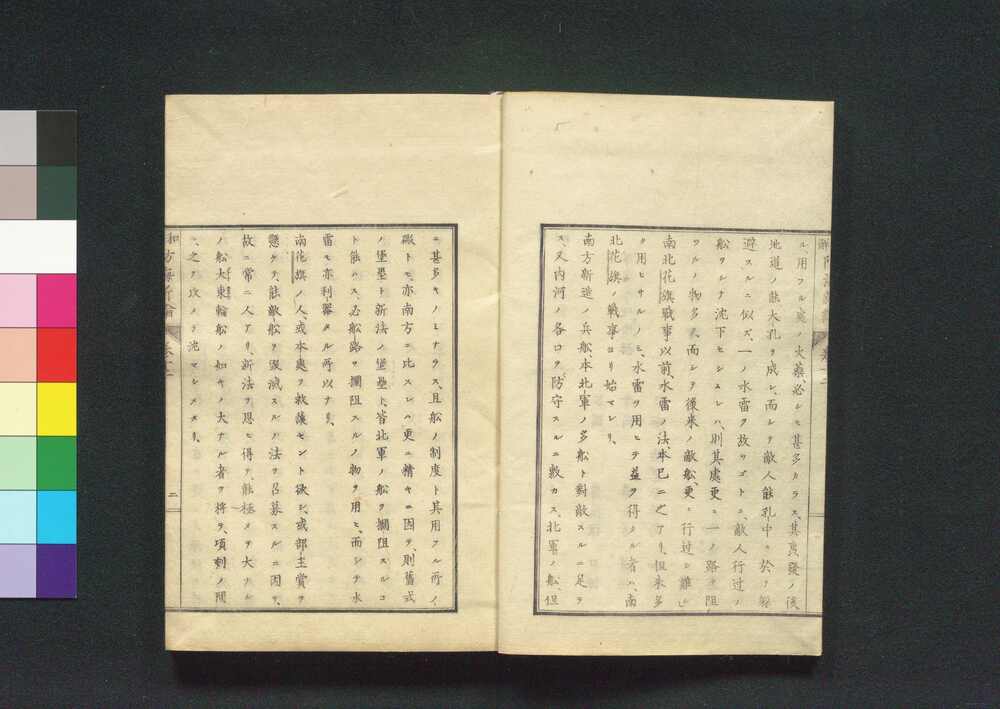 ル用フル處ノ火藥、必シモ甚多カラス、其轟發ノ後
地道ノ能大孔ヲ成シ、而シテ敵人能孔中ニ於テ
避スルニ似ズ、一ノ水雷ヲ放ツゴトニ、敵人行過ノ
船ヲシテ沈下セシムレハ、則其處更ニ一ノ路ヲ阻
ツルノ物多ク、而シテ後來ノ敵船、更ニ行過シ難シ
南北花旗戰事以前、水雷ノ法、本已ニ之アリ、但未多
ク用ヒサルノミ、水雷ヲ用ヒテ益ヲ得タル者ハ、南
北花旗ノ戰事ヨリ始マレリ、
南方新造ノ兵船、本北軍ノ多船ト對敵スルニ足ラ
ス、又内河ノ各口ヲ防守スルニ敷カス、北軍ノ船、但
ニ甚多キノミナラス、且船ノ制度ト其用フル所ノ
礮トモ、亦南方ニ比スレハ更ニ精キニ因テ、則舊式
ノ堡壘ト新法ノ堡壘ト、皆北軍ノ船ヲ攔阻スルコ
ト能ハス、必船路ヲ攔阻スルノ物ヲ用ヒ、而シテ水
雷モ亦利器タル所以ナリ、
南花旗ノ人、或本處ヲ救護セント欲シ、或部主賞ヲ
懸ケテ、能敵船ヲ毀滅スルノ法ヲ召募スルニ因テ、
故ニ常ニ人アリ、新法ヲ思ヒ得テ、能極メテ大ナル
ノ船大東輪船ノ如キノ大ナル者ヲ將テ、頃刻ノ間
ニ、之ヲ攻メテ沈マシメタリ、
二